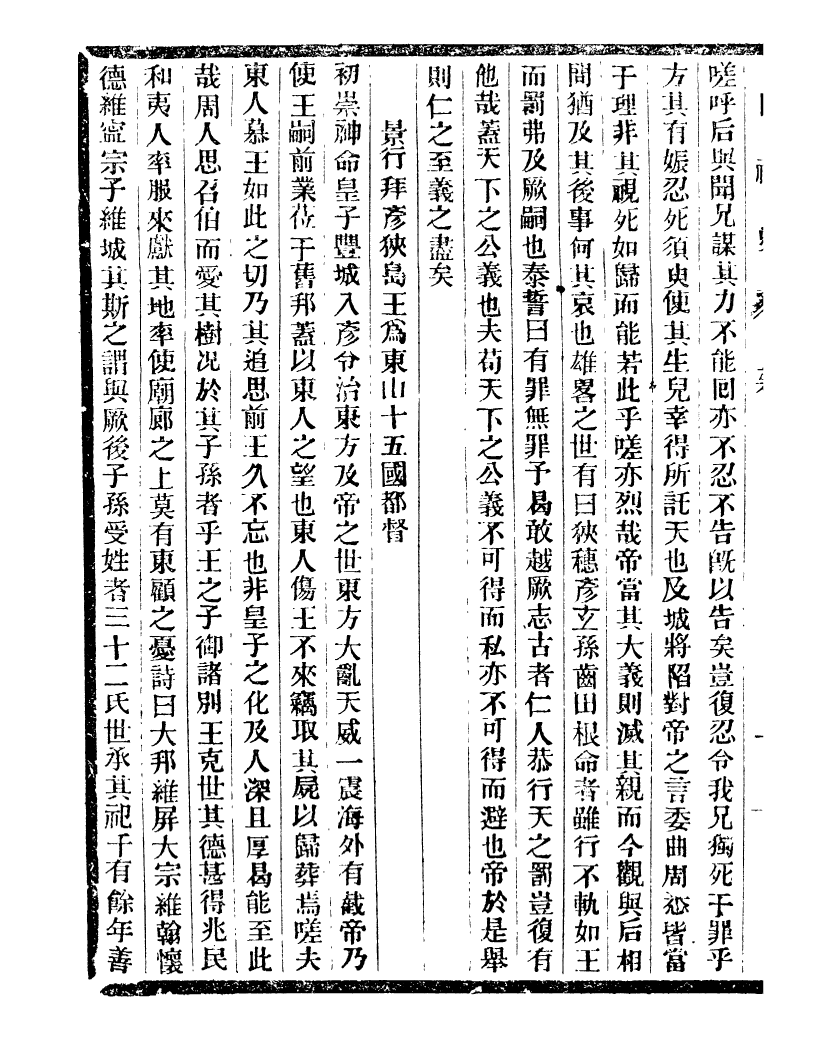 嗟呼后與聞兄謀其力不能回亦不忍不告既以告矣豈復忍令我兄獨死于罪乎
方其有娠忍死須臾使其生兒幸得所託天也及城將陷對帝之言委曲周悉皆當
于理非其視死如歸而能若此乎嗟亦烈哉帝當其大義則滅其親而今觀與后相
問猶及其後事何其哀也雄畧之世有曰狹穗彥玄孫齒田根命者雖行不軌如王
而罰弗及厥嗣也泰誓曰有罪無罪予曷敢越厥志古者仁人恭行天之罰豈復有
他哉蓋天下之公義也夫苟天下之公義不可得而私亦不可得而避也帝於是舉
則仁之至義之盡矣
景行拜彥狹島王爲東山十五國都督
初崇神命皇子豐城入彥令治東方及帝之世東方大亂天威一震海外有截帝乃
使王嗣前業莅于舊邦蓋以東人之望也東人傷王不來竊取其屍以歸葬焉嗟夫
東人慕王如此之切乃其追思前王久不忘也非皇子之化及人深且厚曷能至此
哉周人思召伯而愛其樹况於其子孫者乎王之子御諸別王克世其德甚得兆民
和夷人率服來獻其地率使廟廊之上莫有東顧之憂詩曰大邦維屏大宗維翰懷
德維寧宗子維城其斯之謂與厥後子孫受姓者三十二氏世承其祀千有餘年善